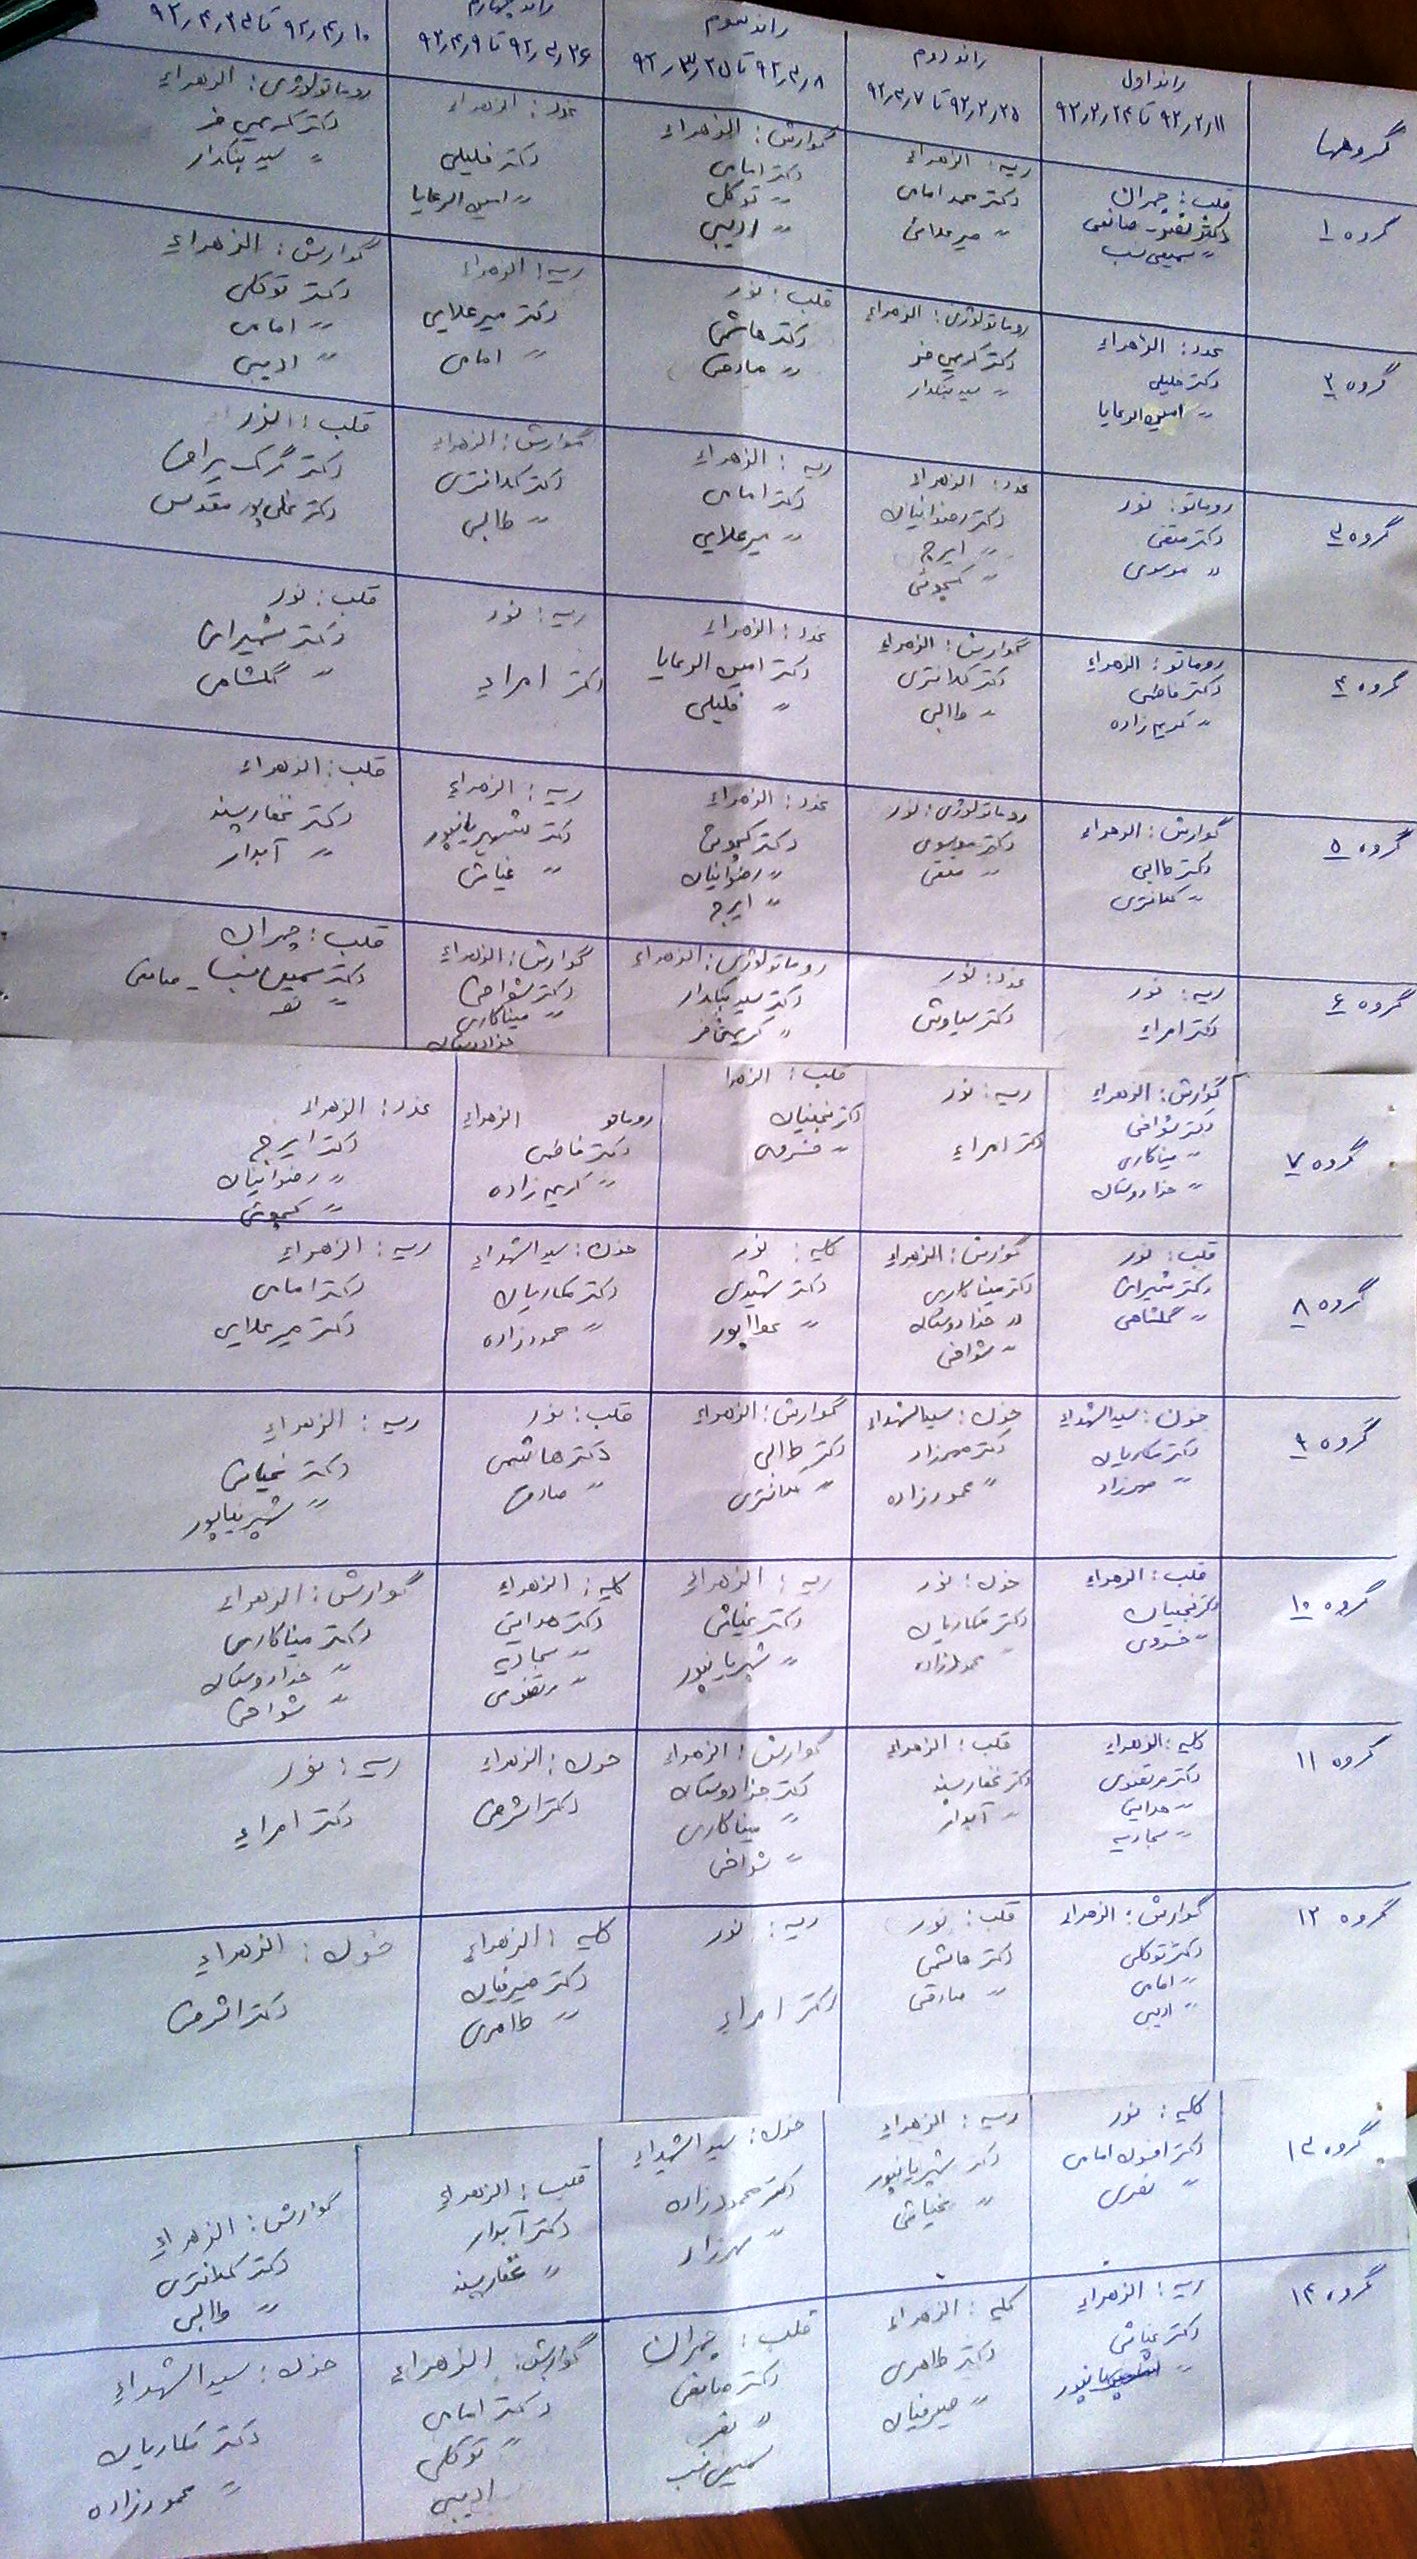 گروهها
راند اول
۹۲٫۲٫۱۱ تا ۹۲٫۲٫۲۴
راند دوم
۹۲٫۲٫۲۵ تا ۹۲٫۳٫۷
راند سوم
۹۲٫۳٫۸ تا ۹۲٫۳٫۲۵
راند چهارم
۹۲٫۳٫۲۶ تا ۹۲٫۴٫۹
۹۲٫۴٫۱۰ تا ۹۲٫۴٫۲۳
گروه ۱
قلب: چمران
دکتر صانعی
" سمیعی نسب
ریه: الزهراء
دکتر محمد امامی
" میرعلائی
گوارش: الزهراء
دکتر امامی
" توکل
" ادیبی
غدد: الزهراء
دکتر خلیلی
" امین الرعایا
روماتولوژی: الزهراء
دکتر کریمی فر
" سید بنکدار
گروه ۲
غدد: الزهراء
دکتر خلیلی
" امین الرعایا
روماتولوژی: الزهراء
دکتر کریمی فر
" سید بنکدار
قلب: نور
دکتر هاشمی
" صادقی
ریه: الزهراء
دکتر میرعلایی
" امامی
گوارش: الزهراء
دکتر توکلی
" امامی
" ادیبی
گروه ۳
روماتو: نور
دکتر متقی
" موسوی
غدد: الزهراء
دکتر رضوانیان
" ایرج
" کچوئی
ریه: الزهراء
دکتر امامی
" میرعلایی
گوارش: الزهراء
دکتر کلانتری
" طالبی
قلب: النور
دکتر ترک
دکتر علی پور مقدس
گروه ۴
روماتو: الزهراء
دکتر فاطمی
" کریم زاده
گوارش: الزهراء
دکتر کلانتری
" طالبی
غدد: الزهراء
دکتر امین الرعایا
" خلیلی
ریه: نور
دکتر امراء
قلب: نور
دکتر شمیرانی
" گلشاهی
گروه ۵
گوارش: الزهراء
دکتر طالبی
" کلانتری
روماتولوژی: نور
دکتر موسوی
" متقی
غدد: الزهراء
دکتر کچوئی
" رضوانیان
" ایرج
ریه: الزهراء
دکتر شهریانپور
" غیاثی
قلب: الزهراء
دکتر غفارپسند
" آبدار
گروه ۶
ریه: نور
دکتر امراء
غدد: نور
دکتر سیاوش
روماتولوژی: الزهراء
دکتر سید بنکدار
" کریمی فر
گوارش: الزهراء
دکتر شوافی
" میناکاری
خدادوستان
قلب: چمران
دکتر سمیعی نسب - صانعی
گروه ۷
گوارش: الزهراء
دکتر شوافی
" میناکاری
" خدادوستان
ریه: نور
دکتر امراء
قلب: الزهرا
دکتر نجفیان
" خسروی
روماتو الزهراء
دکتر فاطمی
" کریم زاده
غدد: الزهراء
دکتر ایرج
" رضوانیان
" کچوئی
گروه ۸
قلب: نور
دکتر شمیرانی
" گلشاهی
گوارش: الزهراء
دکتر میناکاری
" خدادوستان
" شوافی
کلیه: نور
دکتر شهیدی
" عطاپور
خون: سیدالشهداء
دکتر مکاریان
" محمودزاده
ریه: الزهراء
دکتر امامی
دکتر میرعلایی
گروه ۹
خون: سیدالشهداء
دکتر مکاریان
" مهرزاد
خون: سیدالشهداء
دکتر مهرزاد
" محمودزاده
گوارش: الزهراء
دکتر طالبی
" کلانتری
قلب: نور
دکتر هاشمی
" صادقی
ریه: الزهراء
دکتر غیاثی
" شهریانپور
گروه ۱۰
قلب: الزهراء
دکتر نجفیان
" خسروی
خون: نور
دکتر مکاریان
محمودزاده
ریه: الزهراء
دکتر غیاثی
" شهریانپور
کلیه: الزهراء
دکتر هدایتی
" سجادیه
" مرتضوی
گوارش: الزهراء
دکتر میناکاری
" خدادوستان
" شوافی
گروه ۱۱
کلیه: الزهراء
دکتر مرتضوی
" هدایتی
" سجادیه
قلب: الزهراء
دکتر غفارپسند
" آبدار
گوارش: الزهراء
دکتر خدادوستان
" میناکاری
" شوافی
خون: الزهراء
دکتر اشرفی
ریه: نور
دکتر امراء
گروه ۱۲
گوارش: الزهراء
دکتر توکلی
" امامی
" ادیبی
قلب: نور
دکتر هاشمی
" صادقی
ریه: نور
دکتر امراء
کلیه: الزهراء
دکتر صیرفیان
" طاهری
خون: الزهراء
دکتر اشرفی
گروه ۱۳
کلیه: نور
دکتر افسون امامی
ریه: الزهراء
دکتر شهریانپور
" غیاثی
خون: سیدالشهداء
دکتر محمودزاده
" مهرزاد
قلب: الزهراء
دکتر آبدار
" غفارپسند
گوارش: الزهراء
دکتر کلانتری
" طالبی
گروه ۱۴
ریه: الزهراء
دکتر غیاثی
کلیه: الزهراء
دکتر طاهری
" صیرفیان
قلب: چمران
دکتر صانعی
سمیعی نسب
گوارش: الزهراء
دکتر امامی
" توکلی
ادیبی
خون: سیدالشهداء
دکتر مکاریان
" محمودزاده